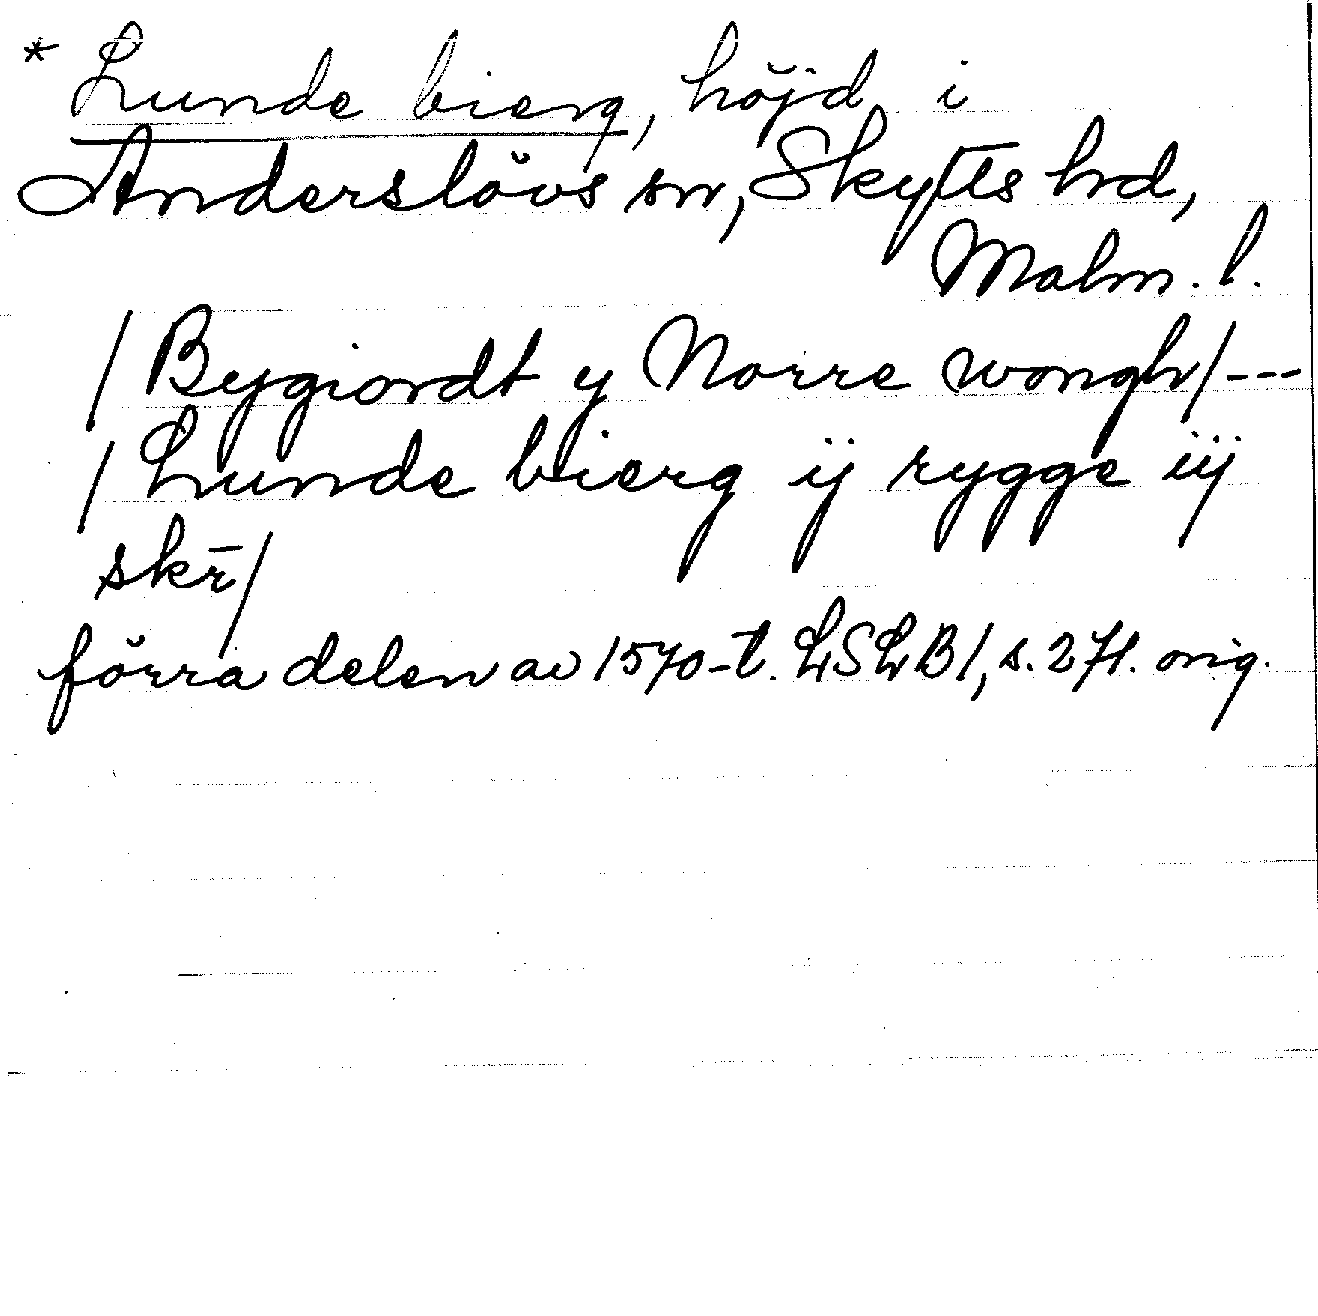 * Lunde bierg, höjd i
Anderslövs sn, Skytts hd,
Malm. l.
/Bygiordt y Norre wongh/---
/Lunde bierg ij rygge iij
skr̄/
förra delen av 1570-t. LSLB1, s. 271. orig.